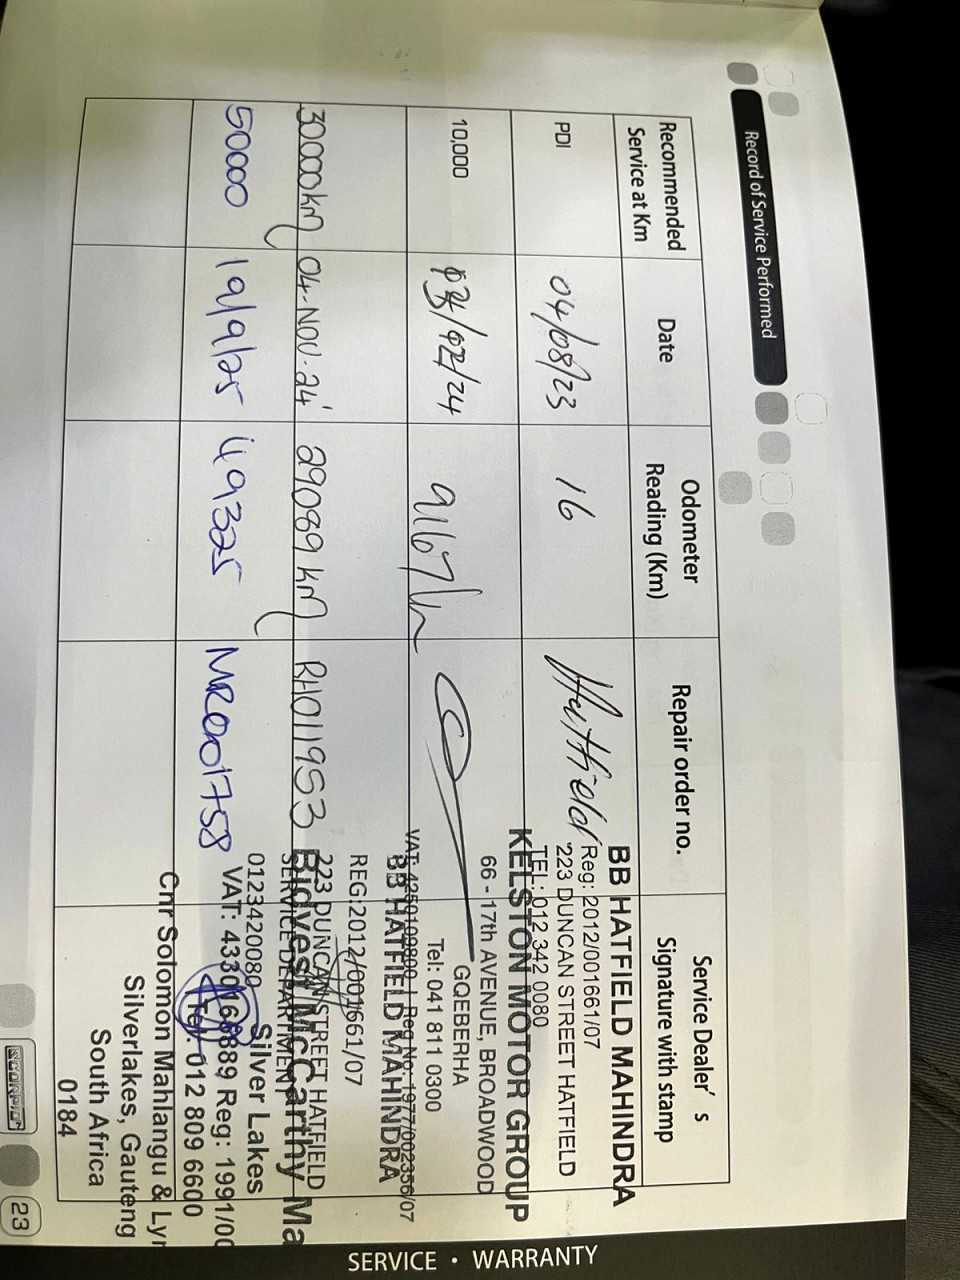 Record of Service Performed
Recommended Service at Km
Date
Odometer Reading (Km)
Repair order no.
Service Dealer's Signature with stamp
PDI
04/08/23
16
Hatfield
BB HATFIELD MAHINDRA
Reg: 2012/001661/07
223 DUNCAN STREET HATFIELD
TEL: 012 342 0080
10,000
/24
9167
KELSTON MOTOR GROUP
66 - 17th AVENUE, BROADWOOD
GQEBERHA
Tel: 041 811 0300
VAT: 4250109800 | Reg No: 1977/002356/07
30000km
04-NOV-24'
29089 km
RH011953
BB HATFIELD MAHINDRA
REG:2012/001661/07
223 DUNCAN STREET HATFIELD
SERVICE DEPARTMENT
0123420080
50000
19/9/25
49325
MR001758
Bidvest McCarthy Ma
Silver Lakes
VAT: 4330168889 Reg: 1991/00
Tel: 012 809 6600
Cnr Solomon Mahlangu & Lyr
Silverlakes, Gauteng
South Africa
0184
SERVICE • WARRANTY
SCORPIO
23